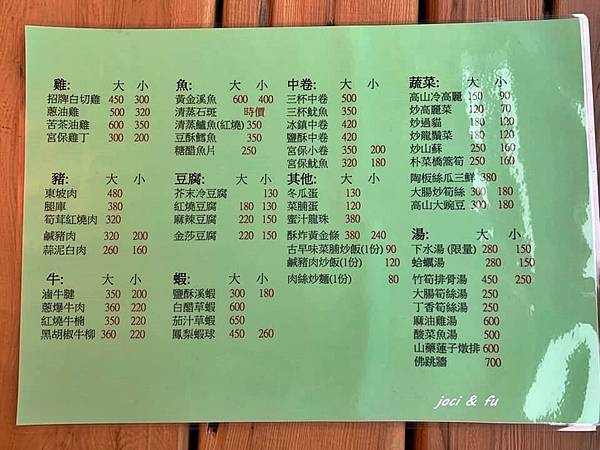 雞: 大 小
招牌白切雞 450 300
蔥油雞 500 320
苦茶油雞 600 350
宮保雞丁 300 200
豬: 大 小
東坡肉 480
腿庫 380
筍茸紅燒肉 320
鹹豬肉 320 200
蒜泥白肉 260 160
牛: 大 小
滷牛腱 350 200
蔥爆牛肉 360 220
紅燒牛楠 350 220
黑胡椒牛柳 360 220
魚: 大 小
黃金溪魚 600 400
清蒸石斑 時價
清蒸鱸魚(紅燒) 350
豆酥鱈魚 350
糖醋魚片 250
豆腐: 大 小
芥末冷豆腐 130
紅燒豆腐 180 130
麻辣豆腐 220 150
金莎豆腐 220 150
蝦: 大 小
鹽酥溪蝦 300 180
白醋草蝦 600
茄汁草蝦 650
鳳梨蝦球 450 260
中卷: 大 小
三杯中卷 500
三杯魷魚 350
冰鎮中卷 420
鹽酥中卷 420
宮保小卷 350 200
宮保魷魚 320 180
其他: 大 小
冬瓜蛋 130
菜脯蛋 120
蜜汁龍珠 380
酥炸黃金條 380 240
古早味菜脯炒飯(1份) 90
鹹豬肉炒飯(1份) 120
肉絲炒麵(1份) 80
蔬菜: 大 小
高山冷高麗 160 90
炒高麗菜 120 70
炒過貓 180 120
炒龍鬚菜 180 120
炒山蘇 250 160
朴菜橋篙筍 250 160
陶板絲瓜三鮮 380
大腸炒筍絲 300 180
高山大豌豆 300 180
湯: 大 小
下水湯 (限量) 280 150
蛤蠣湯 280 150
竹筍排骨湯 450 250
大腸筍絲湯 500
丁香筍絲湯 500
麻油雞湯 600
酸菜魚湯 500
山藥蓮子燉排 600
佛跳牆 700
joci & fu